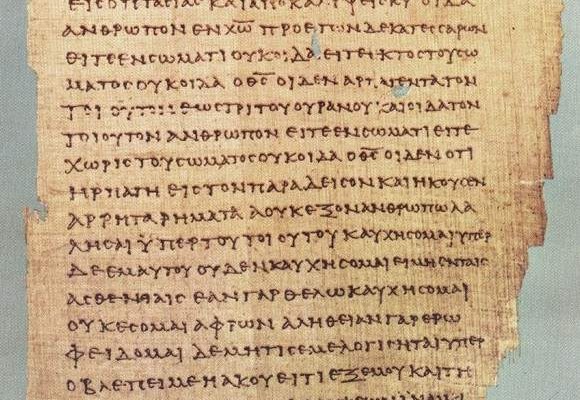 ΑΝΘΡΩΠΟΝ ΕΝ Χ̅Ω̅ ΠΡΟ ΕΤΩΝ ΔΕΚΑΤΕϹϹΑΡΩΝ
ΕΙΤΕ ΕΝ ϹΩΜΑΤΙ ΟΥΚ ΟΙΔΑ ΕΙΤΕ ΕΚΤΟϹ ΤΟΥ ϹΩ
ΜΑΤΟϹ ΟΥΚ ΟΙΔΑ Ο Θ̅Ϲ̅ ΟΙΔΕΝ ΑΡΠΑΓΕΝΤΑ ΤΟΝ
ΤΟΙΟΥΤΟΝ ΕΩϹ ΤΡΙΤΟΥ ΟΥΡΑΝΟΥ ΚΑΙ ΟΙΔΑ ΤΟΝ
ΤΟΙΟΥΤΟΝ ΑΝΘΡΩΠΟΝ ΕΙΤΕ ΕΝ ϹΩΜΑΤΙ ΕΙΤΕ
ΧΩΡΙϹ ΤΟΥ ϹΩΜΑΤΟϹ ΟΥΚ ΟΙΔΑ Ο Θ̅Ϲ̅ ΟΙΔΕΝ ΟΤΙ
ΗΡΠΑΓΗ ΕΙϹ ΤΟΝ ΠΑΡΑΔΕΙϹΟΝ ΚΑΙ ΗΚΟΥϹΕΝ
ΑΡΡΗΤΑ ΡΗΜΑΤΑ Α ΟΥΚ ΕΞΟΝ ΑΝΘΡΩΠΩ ΛΑ
ΛΗϹΑΙ ΫΠΕΡ ΤΟΥ ΤΟΙΟΥΤΟΥ ΚΑΥΧΗϹΟΜΑΙ ΥΠΕΡ
ΔΕ ΕΜΑΥΤΟΥ ΟΥΔΕΝ ΚΑΥΧΗϹΟΜΑΙ ΕΙ ΜΗ ΕΝ ΤΑΙϹ
ΑϹΘΕΝΕΙΑΙϹ ΕΑΝ ΓΑΡ ΘΕΛΩ ΚΑΥΧΗϹΟΜΑΙ
ΟΥΚ ΕϹΟΜΑΙ ΑΦΡΩΝ ΑΛΗΘΕΙΑΝ ΓΑΡ ΕΡΩ
ΦΕΙΔΟΜΑΙ ΔΕ ΜΗ ΤΙϹ ΕΜΕ ΛΟΓΙϹΗΤΑΙ ΥΠΕΡ
Ο ΒΛΕΠΕΙ ΜΕ Η ΑΚΟΥΕΙ ΤΙ ΕΞ ΕΜΟΥ ΚΑΙ ΤΗ